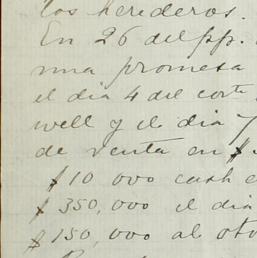 los herederos.
En 26 del pp.
una promesa
el dia 4 del corte
well y el dia 7
de venta en $
$10 000 cash e
$350,000 el dia
$150,000 al oto